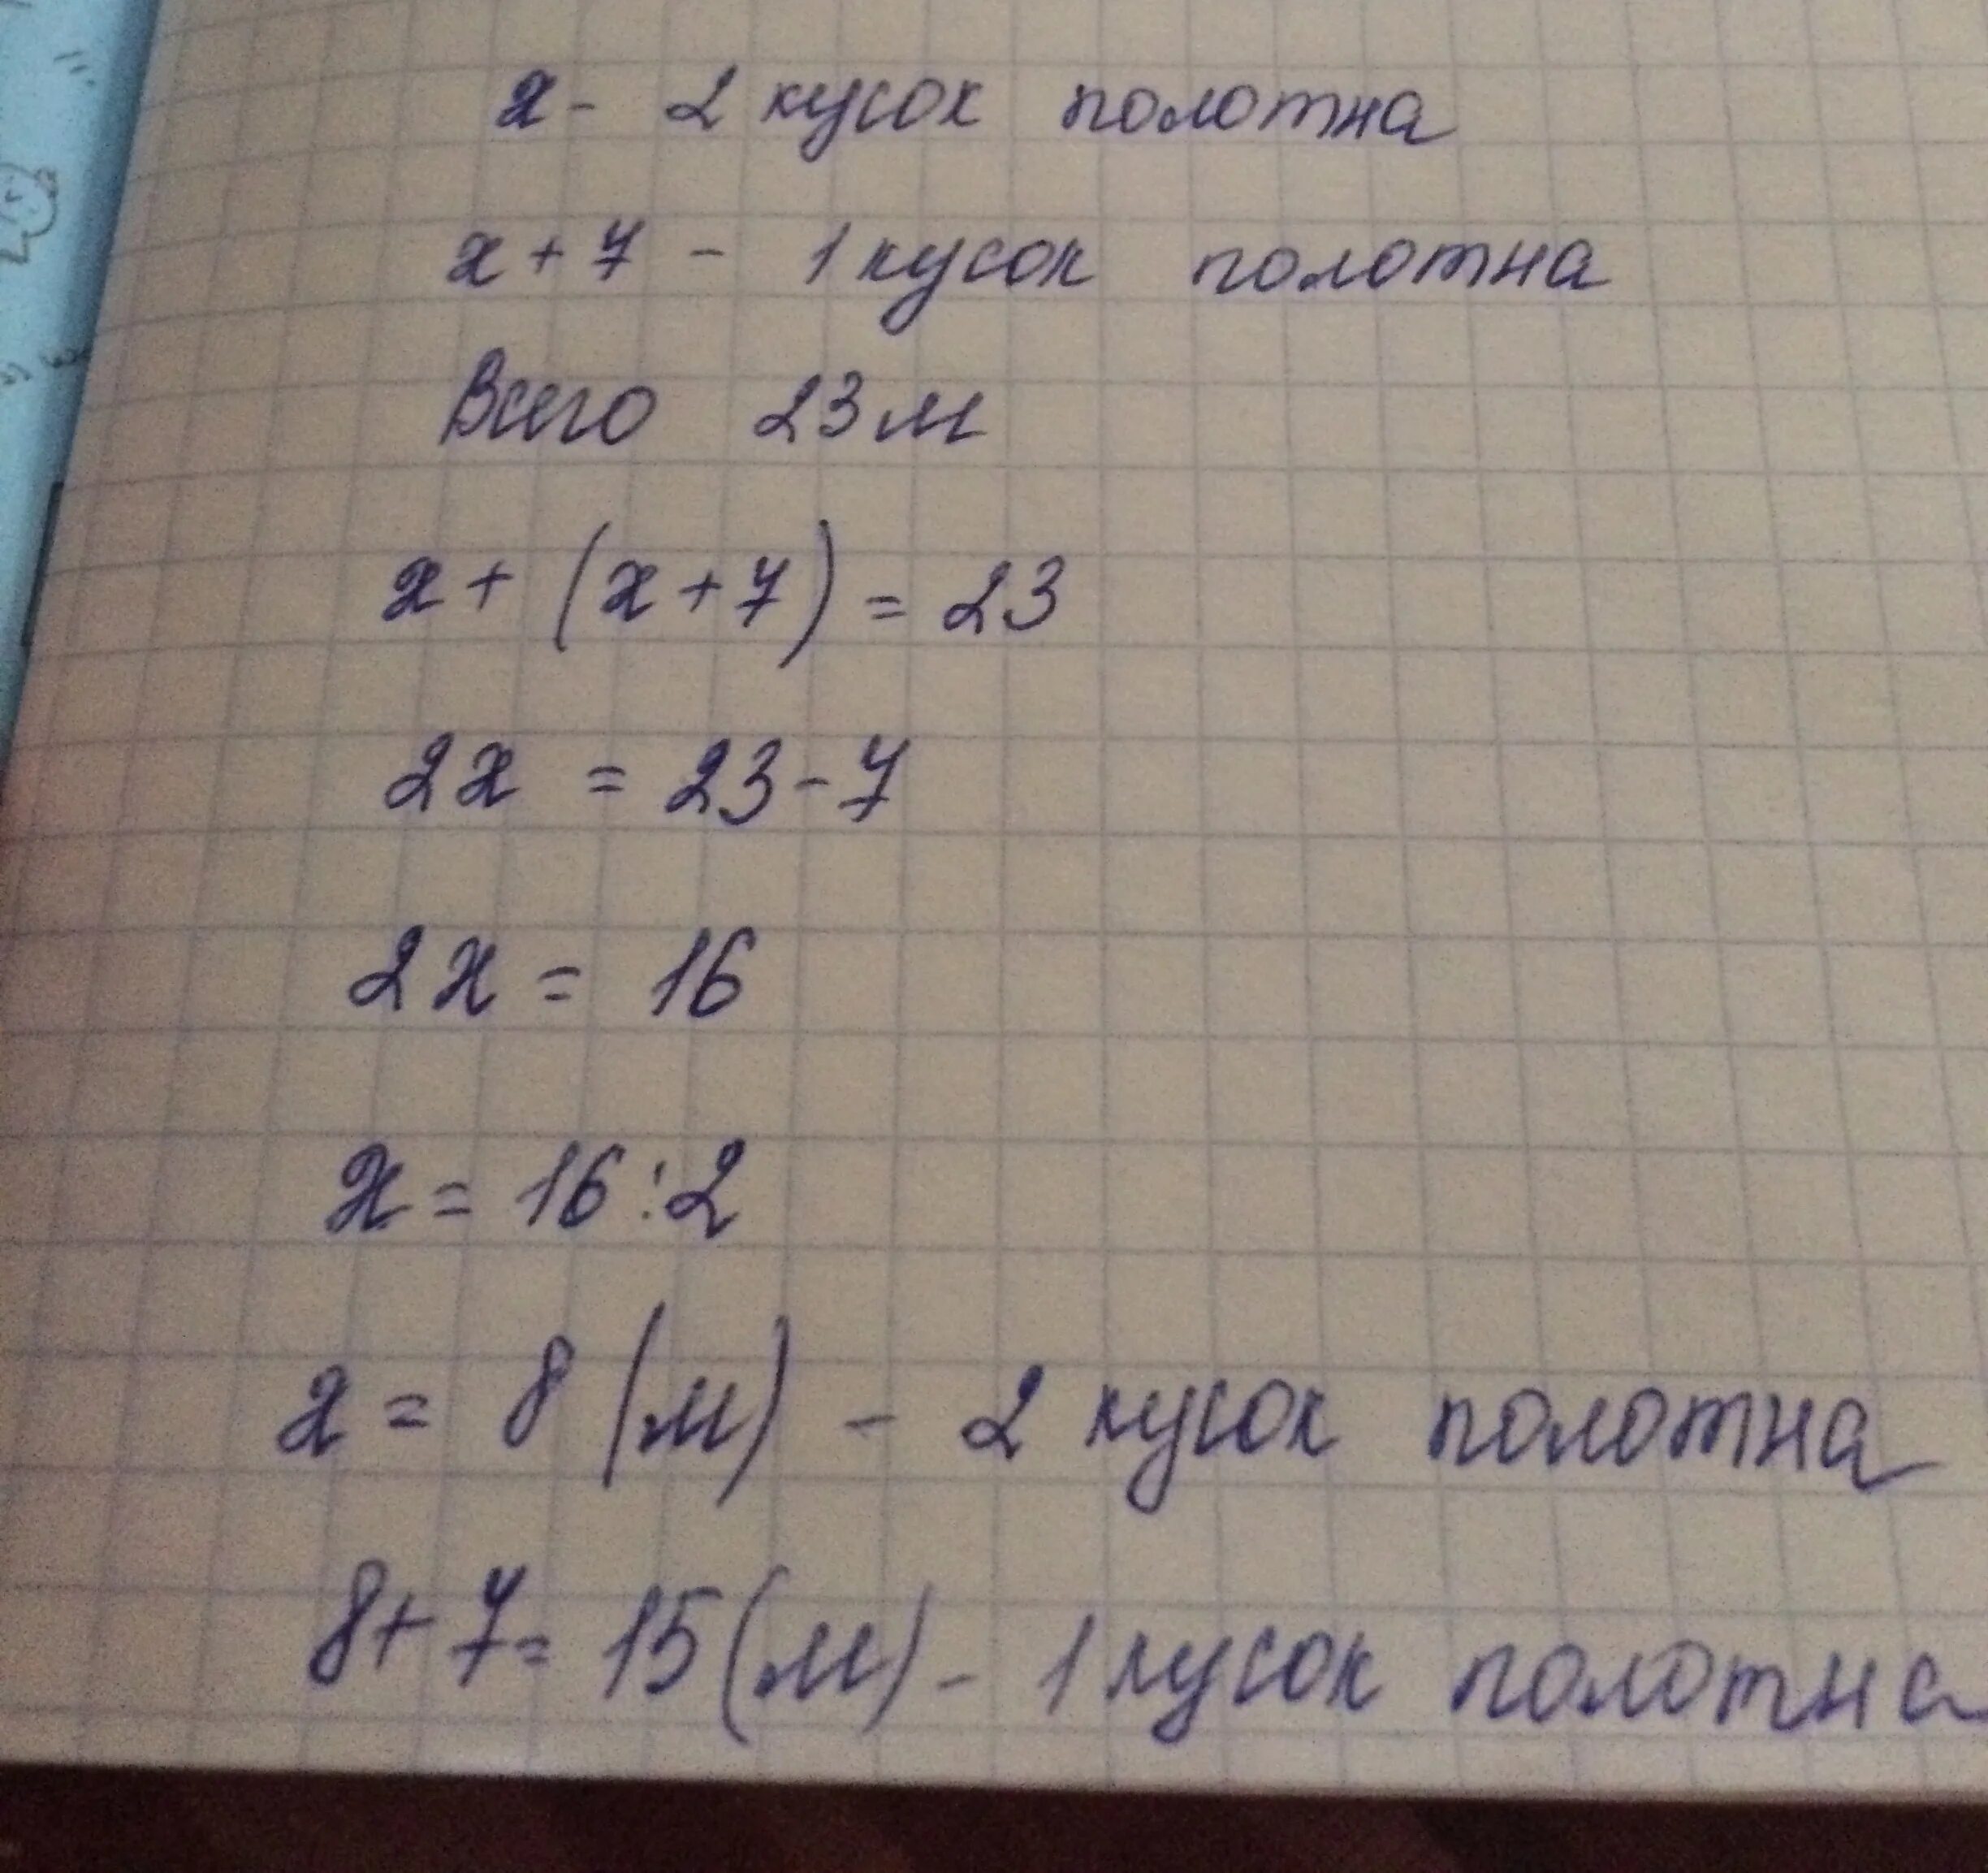 x - 2 кусок полотна
x + 7 - 1 кусок полотна
Всего 23 м
x + (x + 7) = 23
2x = 23 - 7
2x = 16
x = 16 : 2
x = 8 (м) - 2 кусок полотна
8 + 7 = 15 (м) - 1 кусок полотна